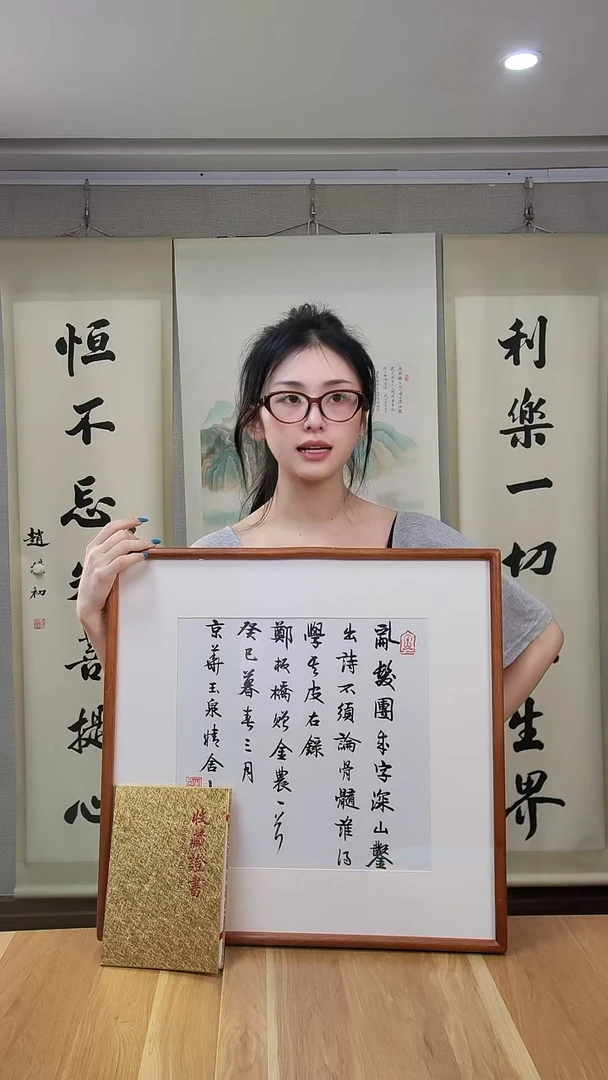 利樂一切生界
恒不忘失菩提心
趙初
亂髮團成字深山鑿
出詩不須論骨髓誰得
學其皮右錄
鄭板橋贈金農一首
癸巳暮春三月
京華玉泉精舍
收藏證書